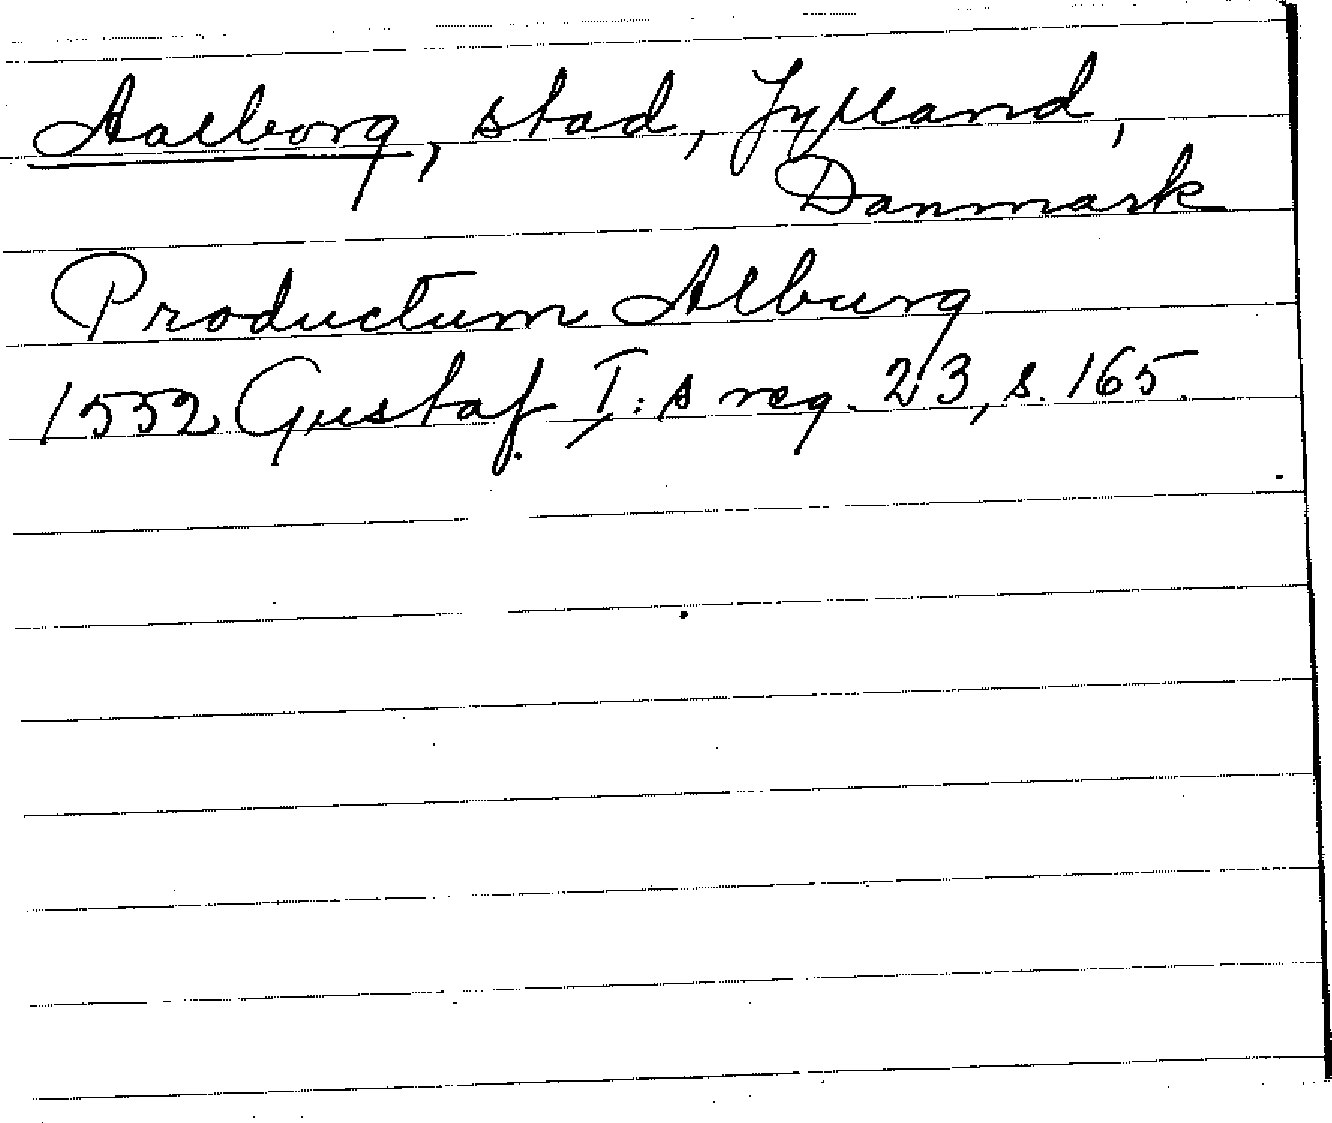 Aalborg, stad, Jylland,
Danmark
Productum Alburg
1552 Gustaf I:s reg. 23, s. 165.